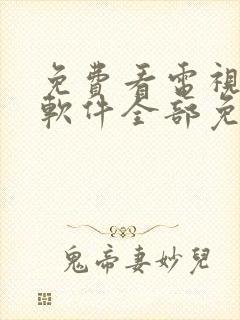 免費看電視
軟件全部免
鬼帝妻妙兒